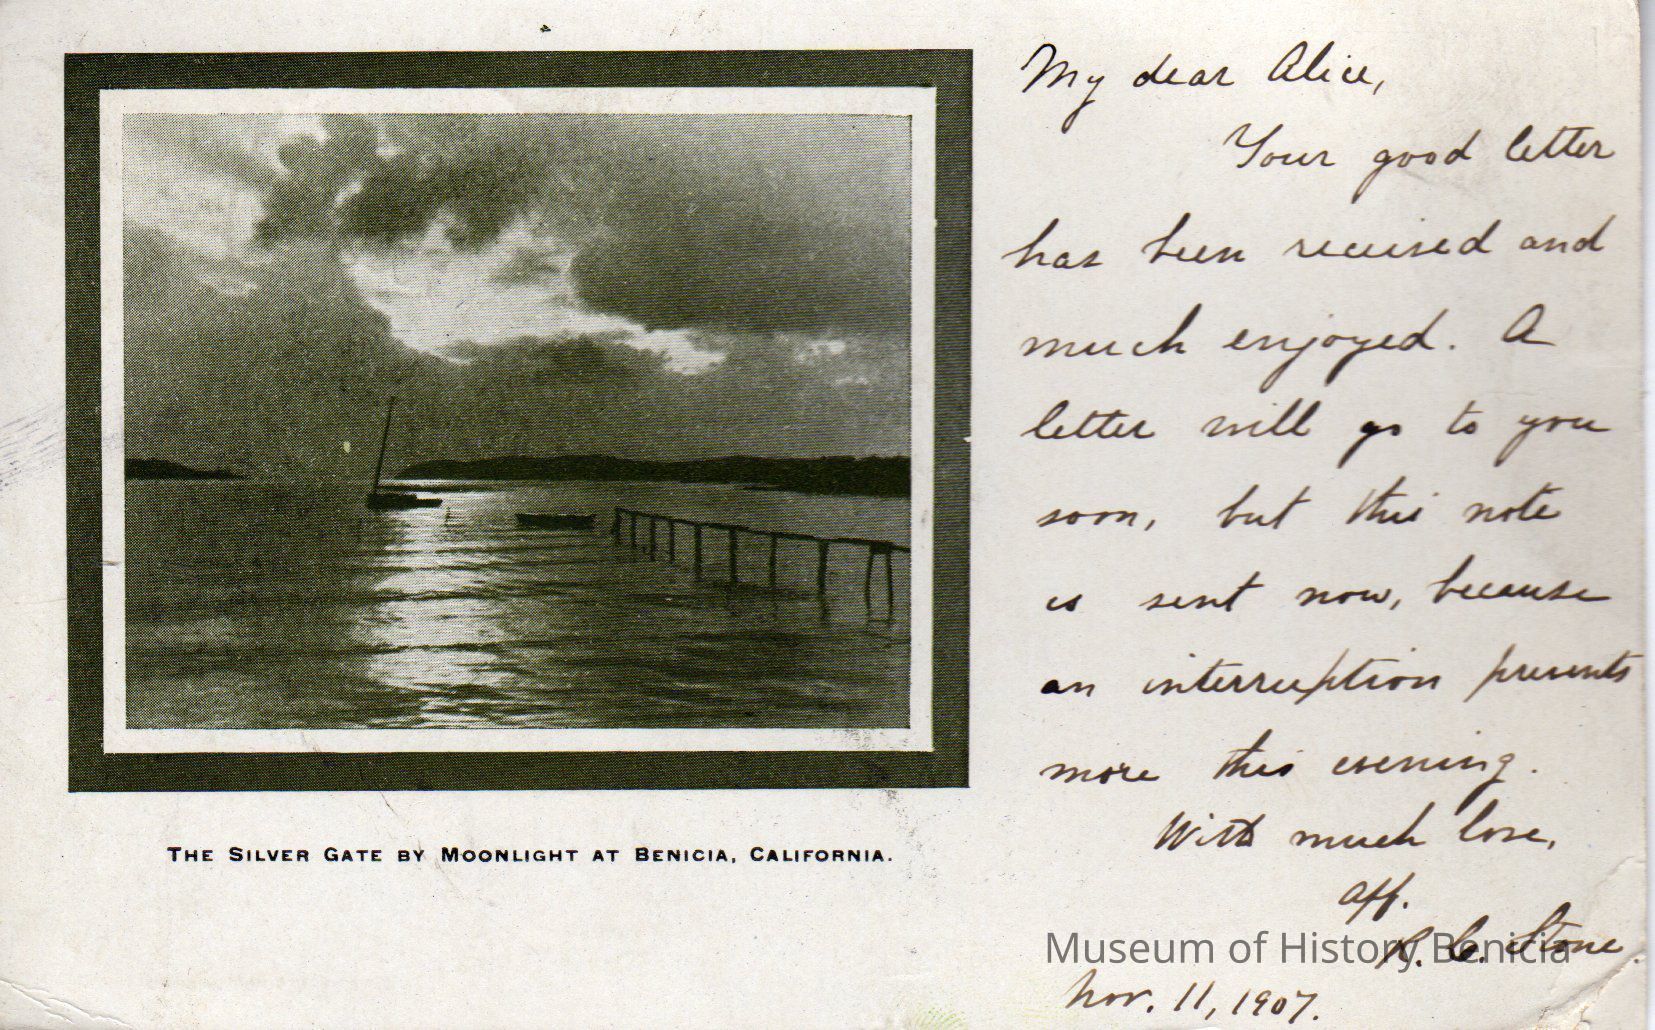 THE SILVER GATE BY MOONLIGHT AT BENICIA, CALIFORNIA.
My dear Alice,
Your good letter
has been received and
much enjoyed. A
letter will go to you
soon, but this note
is sent now, because
an interruption prevents
more this evening.
With much love,
aff.
R. C. Stone.
Nov. 11, 1907.
Museum of History Benicia